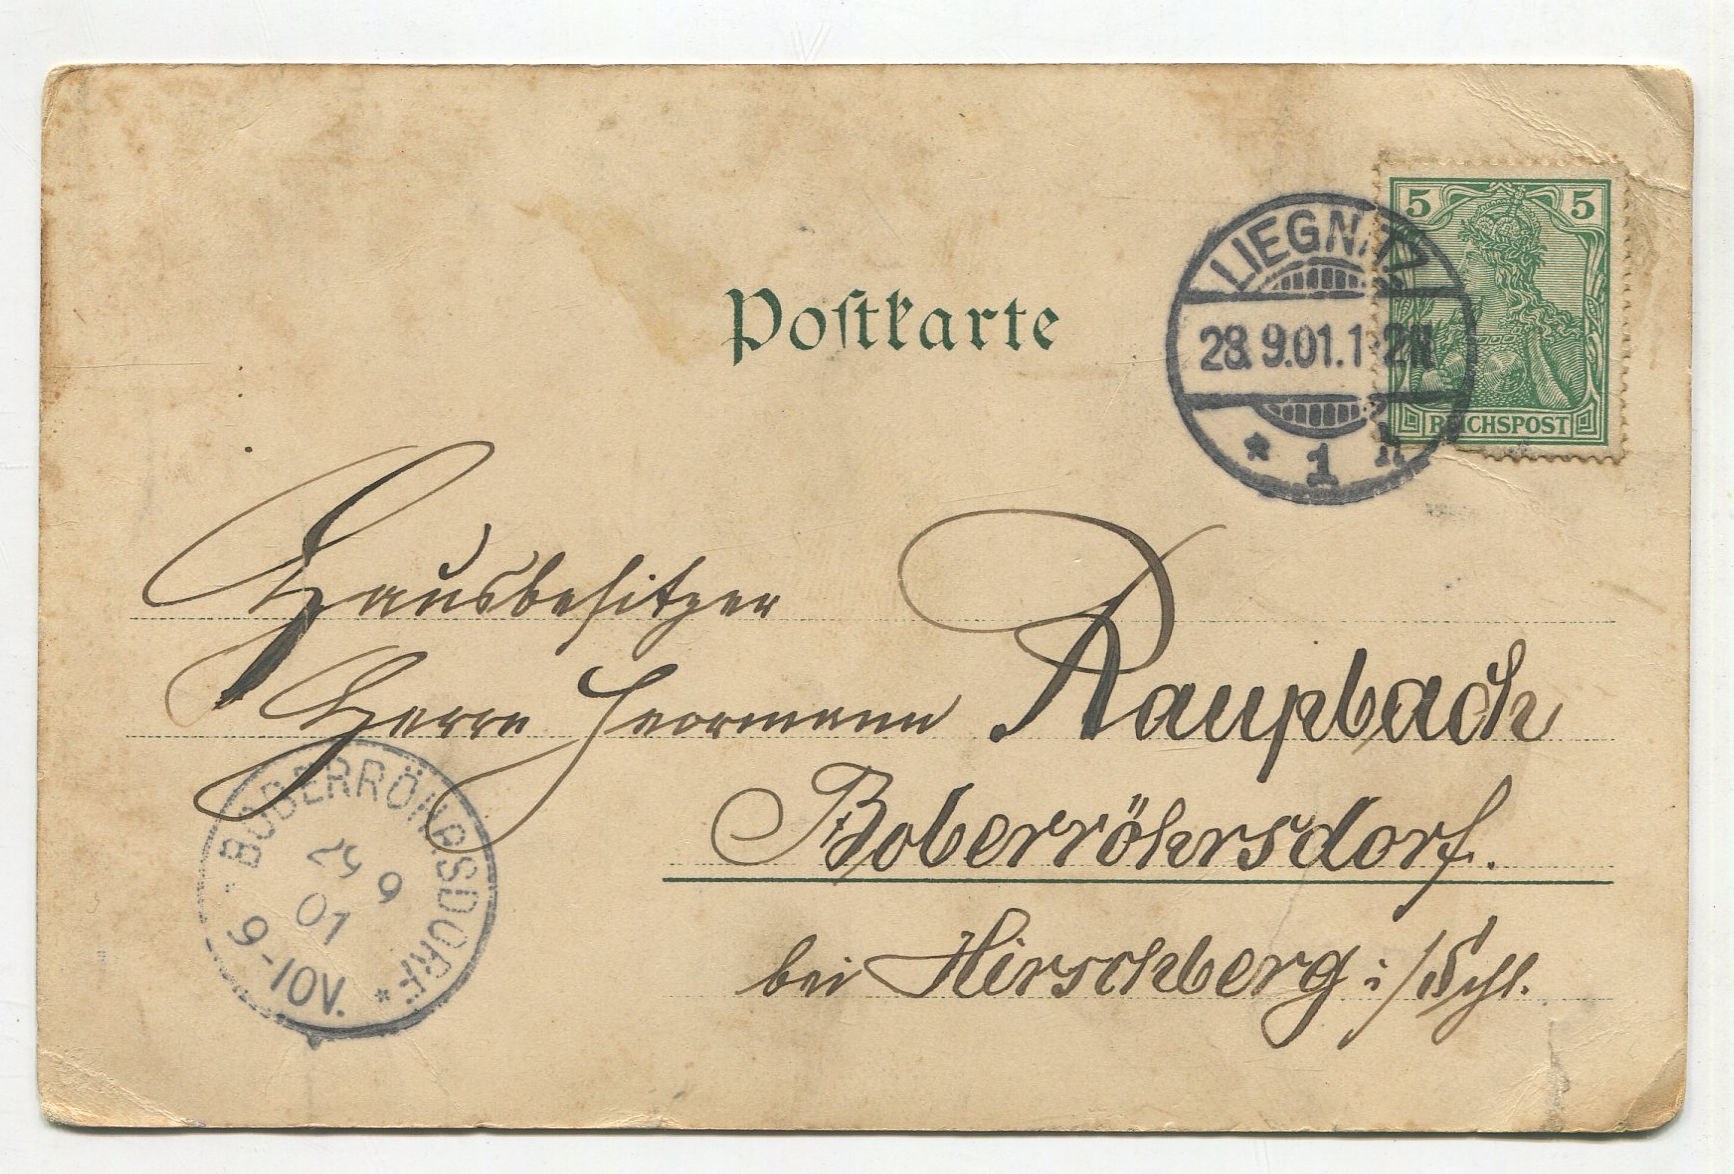 Postkarte
5 5
REICHSPOST
LIEGNITZ
28.9.01.1-2N
* 1 h
Hausbesitzer
Herrn Herrmann Raupbach
Boberröhrsdorf.
bei Hirschberg i/Schl.
BOBERRÖHRSDORF *
29 9
01
9-10V.